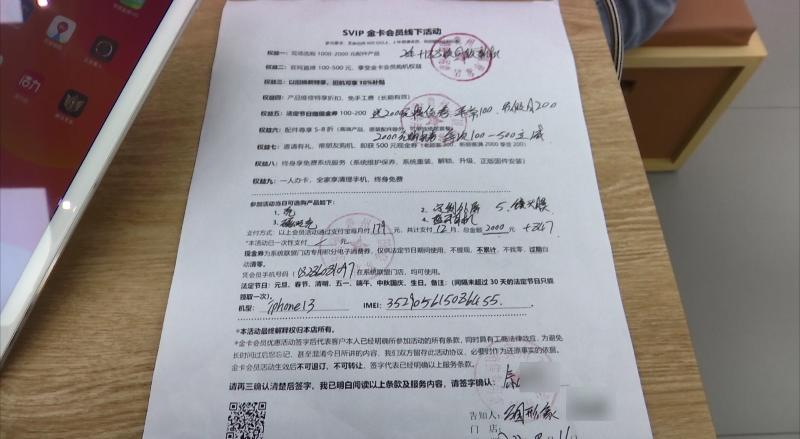 SVIP 金卡会员线下活动
权益一：现场选购1000-2000元配件产品
权益二：官网直降 100-500 元，享受金卡会员购机权益
权益三：以旧换新特享，旧机可享 10%补贴
权益四：产品维修特享折扣，免手工费（长期有效）
权益五：法定节日领现金券 100-200
权益六：配件尊享 5-8 折
权益七：邀请有礼，带朋友购机，即获 500 元现金券
权益八：终身享免费系统服务（系统维护保养、系统重装、解锁、升级、正版固件安装）
权益九：一人办卡，全家享清理手机，终身免费
参加活动当日可选购产品如下：
1. 壳
2.
5. 镜头膜
3.
4. 蓝牙耳机
支付方式：以上会员活动通过支付宝每月付 179 元，共计支付 12 月，现金额 2000 元 +347
*本活动日一次性支付 元。
现金券为系统联盟门店专用积分电子消费券，仅供法定节日期间使用，不提现，不累计，不找零，过期自动清零。
凭会员手机号码 在系统联盟门店，均可使用。
法定节日：元旦、春节、清明、五一、端午、中秋国庆，生日，备注：（间隔未超过 30 天的法定节日只能领取一次）。
机型： iphone13 IMEI： 352905615036455.
*本活动最终解释权归本店所有。
*金卡会员优惠活动签字后代表客户本人已经明确所参加活动的所有条款，同时具有工商法律效应，为避免
长时间过后您忘记，甚至混淆今日所讲的内容，我们双方留存此活动协议，必要时作为还原事实的依据。
金卡会员活动生效后不可退订、不可转让，签字代表已经明确以上服务。
请再三确认清楚后签字，我已明白阅读以上条款及服务内容，请签字确认：
告知人：
门 店：